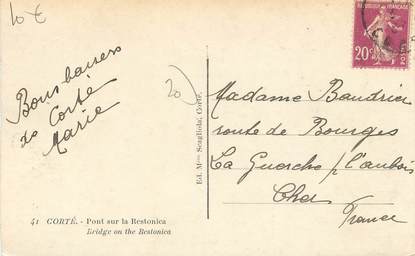 10 €
REPUBLIQUE FRANÇAISE
20c
POSTES
20
Bons baisers
de Corté
Marie
Ed. Mme Scagliola, Corte.
Madame Baudrier
route de Bourges
La Guerche s/ l'aubois
Cher
France
41 CORTÉ. - Pont sur la Restonica
Bridge on the Restonica